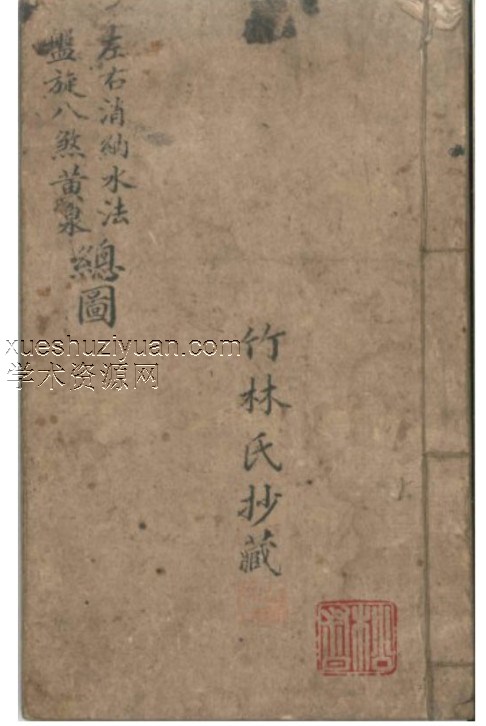 左右消納水法
盤旋八煞黄泉
總圖
竹林氏抄藏
xueshuziyuan.com
学术资源网